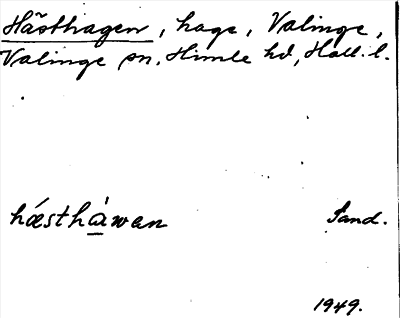 Hästhagen, hage, Valinge,
Valinge sn. Himle hd, Hall. l.
hǽsthàwan
Sand.
1949.